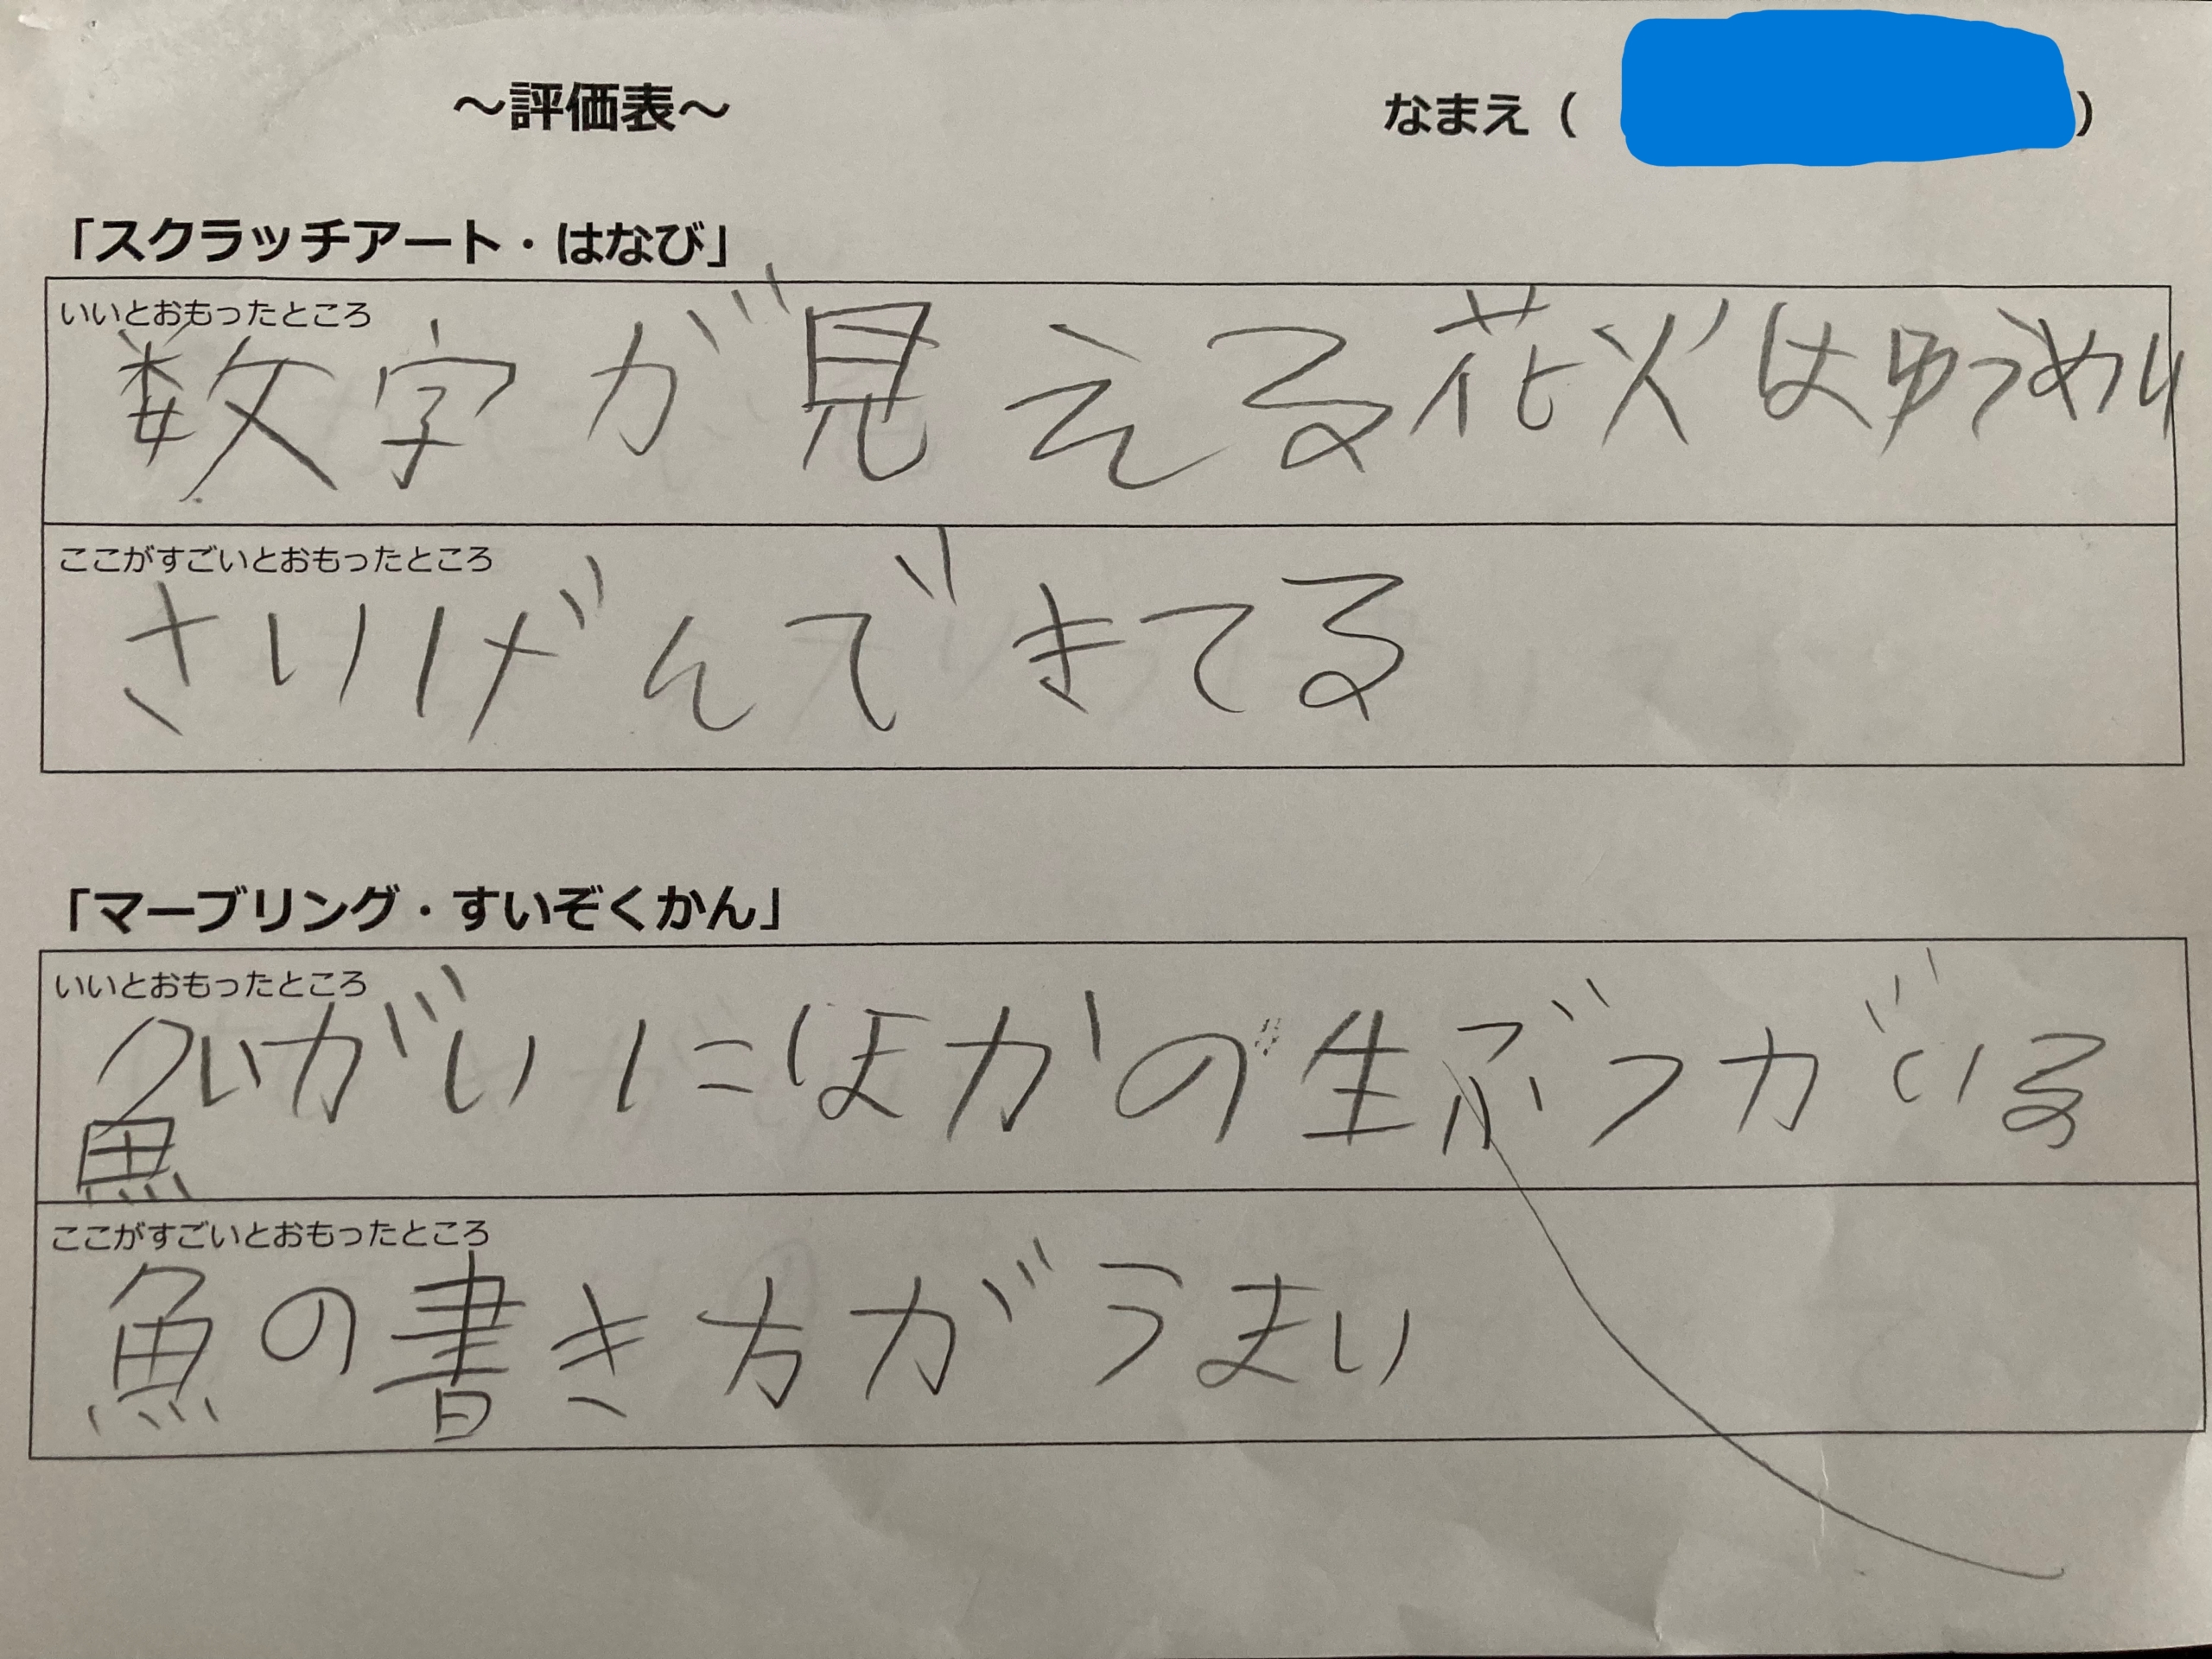 ～評価表～ なまえ（ ）
「スクラッチアート・はなび」
いいとおもったところ
数字が見える花火はゆうめい
ここがすごいとおもったところ
さいげんできてる
「マーブリング・すいぞくかん」
いいとおもったところ
魚いがいにほかの生ぶつがいる
ここがすごいとおもったところ
魚の書き方がうまい